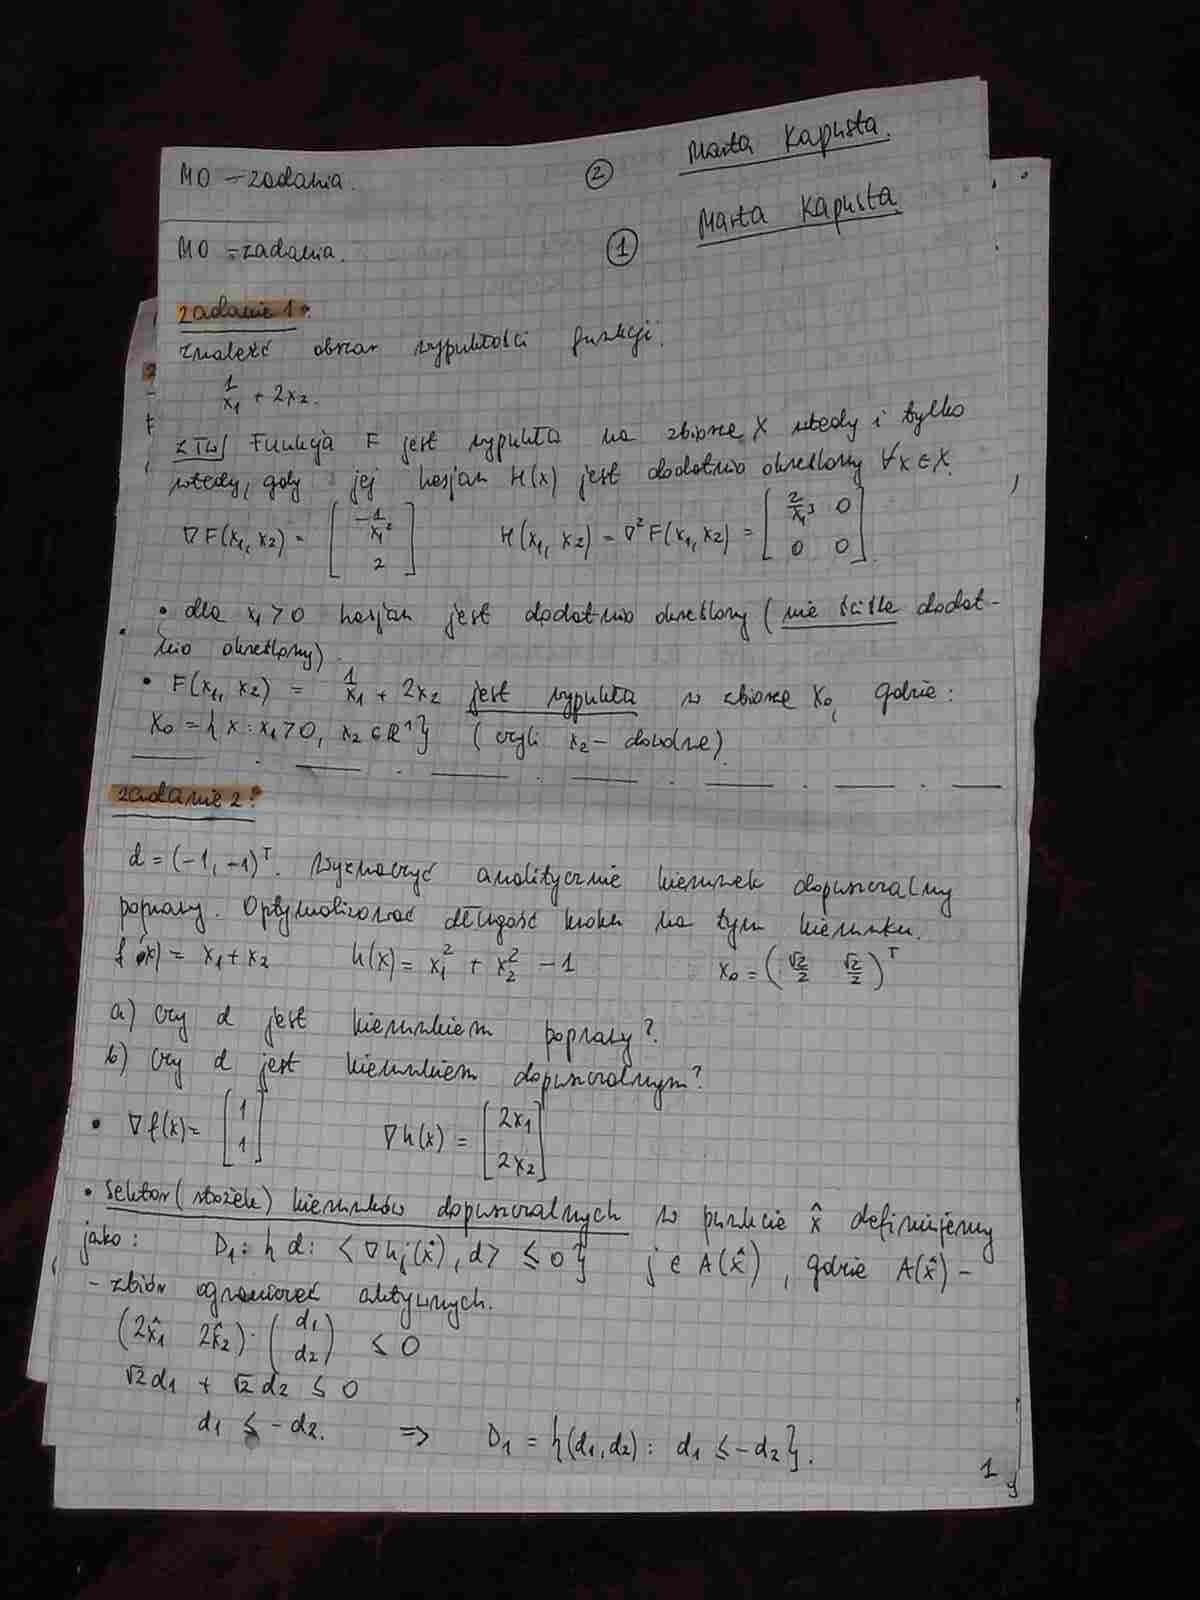 MO - zadania. ② Marta Kapusta.
MO - zadania. ① Marta Kapusta.
zadanie 1:
znaleźć obszar wypukłości funkcji:
1/x₁ + 2x₂.
z TW/ Funkcja F jest wypukła na zbiorze X wtedy i tylko
wtedy, gdy jej hesjan H(x) jest dodatnio określony ∀x∈X.
∇F(x₁, x₂) = [-1/x₁² ; 2] H(x₁, x₂) = ∇²F(x₁, x₂) = [2/x₁³ 0 ; 0 0]
• dla x₁>0 hesjan jest dodatnio określony (nie ściśle dodat-
nio określony).
• F(x₁, x₂) = 1/x₁ + 2x₂ jest wypukła w zbiorze X₀, gdzie:
X₀ = {x : x₁>0, x₂∈R¹} (czyli x₂ - dowolne)
zadanie 2:
d = (-1, -1)ᵀ. Wyznaczyć analitycznie kierunek dopuszczalny
poprawy. Optymalizować długość kroku na tym kierunku.
f(x) = x₁+x₂ h(x) = x₁² + x₂² - 1 x₀ = (√2/2 √2/2)ᵀ
a) czy d jest kierunkiem poprawy?
b) czy d jest kierunkiem dopuszczalnym?
• ∇f(x) = [1 ; 1] ∇h(x) = [2x₁ ; 2x₂]
• Sektor (stożek) kierunków dopuszczalnych w punkcie x̂ definiujemy
jako: D₁ : { d : < ∇hⱼ(x̂), d > ≤ 0 } j ∈ A(x̂), gdzie A(x̂) -
- zbiór ograniczeń aktywnych.
(2x̂₁ 2x̂₂) · (d₁ ; d₂) ≤ 0
√2d₁ + √2d₂ ≤ 0
d₁ ≤ -d₂. ⇒ D₁ = {(d₁, d₂) : d₁ ≤ -d₂}.
1